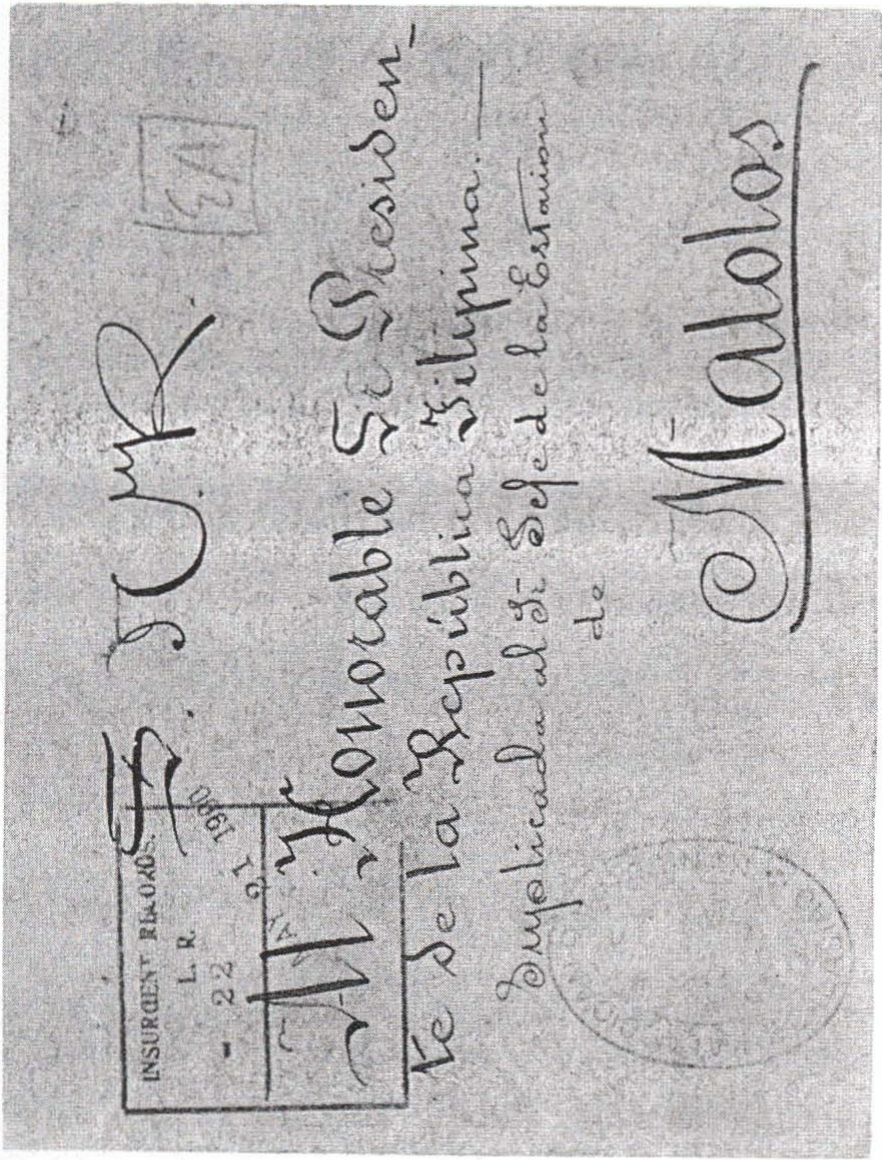 INSURGENT RECORDS.
L. R.
- 22
1900
EA
S. N y R.
Al Honorable Sr Presiden-
te de la República Filipina.—
Suplicada al Sr Gefe de la Estacion
de
Malolos